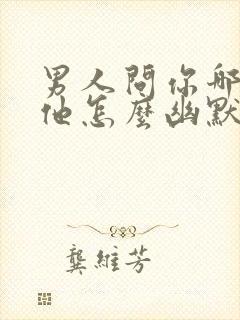 男人問你哪
他怎麼幽默
龔維芳